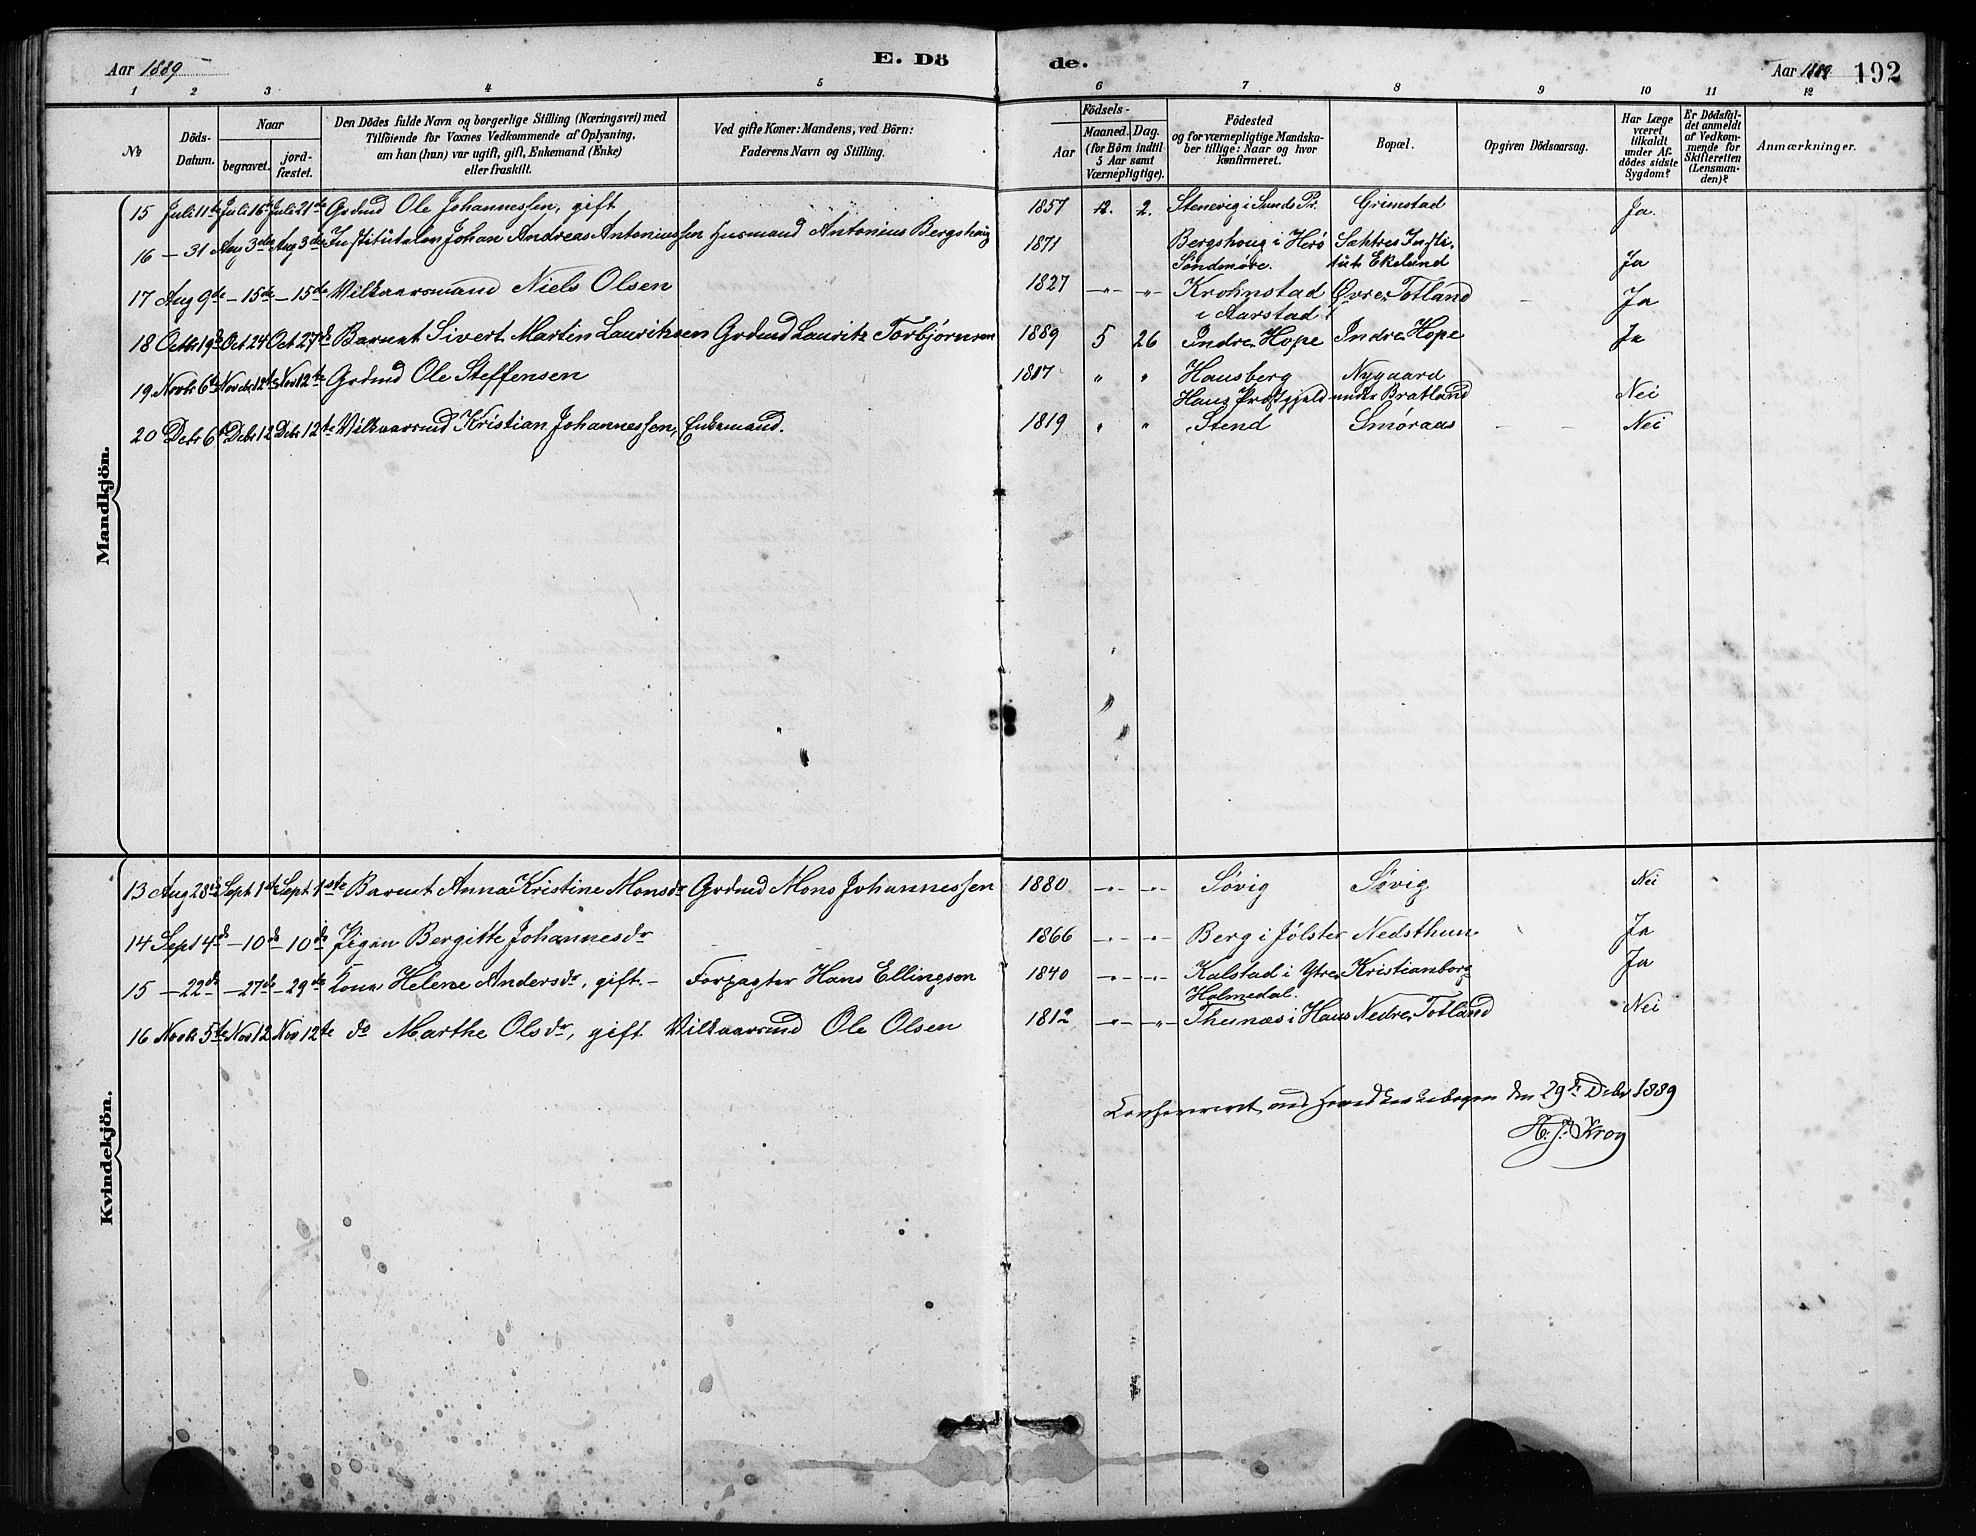 Aar 1889
E. Dö
de.
Aar 1889
192
1 2 3 4 5 6 7 8 9 10 11 12
№
Döds-
Datum.
Naar
begravet.
jord-
fæstet.
Den Dödes fulde Navn og borgerlige Stilling (Næringsvei) med
Tilföiende for Voxnes Vedkommende af Oplysning,
om han (hun) var ugift, gift, Enkemand (Enke)
eller fraskilt.
Ved gifte Koner: Mandens, ved Börn:
Faderens Navn og Stilling.
Födsels-
Aar
Maaned. Dag.
(for Börn indtil
5 Aar samt
Værnepligtige).
Födested
og for værnepligtige Mandska-
ber tillige: Naar og hvor
konfirmeret.
Bopæl.
Opgiven Dödsaarsag.
Har Læge
været
tilkaldt
under Af-
dödes sidste
Sygdom?
Er Dödsfal-
det anmeldt
af Vedkom-
mende for
Skifteretten
(Lensman-
den)?
Anmærkninger.
Mandkjön.
15 Juli 11te Juli 16de Juli 21de Grdmd Ole Johannessen, gift 1857 12. 2. Stenevig i Sunds Pr. Grimstad Ja.
16 – 31 Aug 3die Aug 3die Institutalen Johan Andreas Antoniussen Husmand Antonius Bergshoug 1871 Bergshoug i Herö Sæhtres Insti-
Söndmöre. tut Ekelund Ja
17 Aug 9de – 15de – 15de Vilkaarsmand Niels Olsen 1827 –"– –"– Krohnstad Øvre Totland
i Aarstad Ja
18 Octb 19de Oct 24 Oct 27de Barnet Sivert Martin Lauritzsen Grdmd Lauritz Torbjörnsen 1889 5 26 Indre Hope Indre Hope Ja
19 Novb 6te Novbr 12te Nov 12te Grdmd Ole Steffensen 1817 " " Hausberg Nygaard
Haus Præstgjeld under Bratland Nei
20 Debr 6te Debr 12 Debr 12te Vilkaarsmd Kristian Johannessen, Enkemand. 1819 " " Stend Smöraas – – Nei
Kvindekjön.
13 Aug 28de Sept 1ste Sept 1ste Barnet Anna Kristine Monsdr Grdmd Mons Johannessen 1880 –"– –"– Søvig Søvig Nei
14 Sept 4de – 10de – 10de Pigen Bergitte Johannesdr – 1866 –"– –"– Berg i Jölster Nedsthun Ja
15 – 22de – 27de – 29de Kone Helene Andersdr, gift – Forpagter Hans Ellingsen 1840 –"– –"– Kalstad i Ytre Kristianborg
Holmedal. Ja
16 Novb 5te Nov 12 Nov 12te do Marthe Olsdr, gift Vilkaarsmd Ole Olsen 1812 –"– –"– Thunæs i Haus Nedre Totland Nei
Confereret med Hovedkirkebogen den 29de Debr 1889
Krog